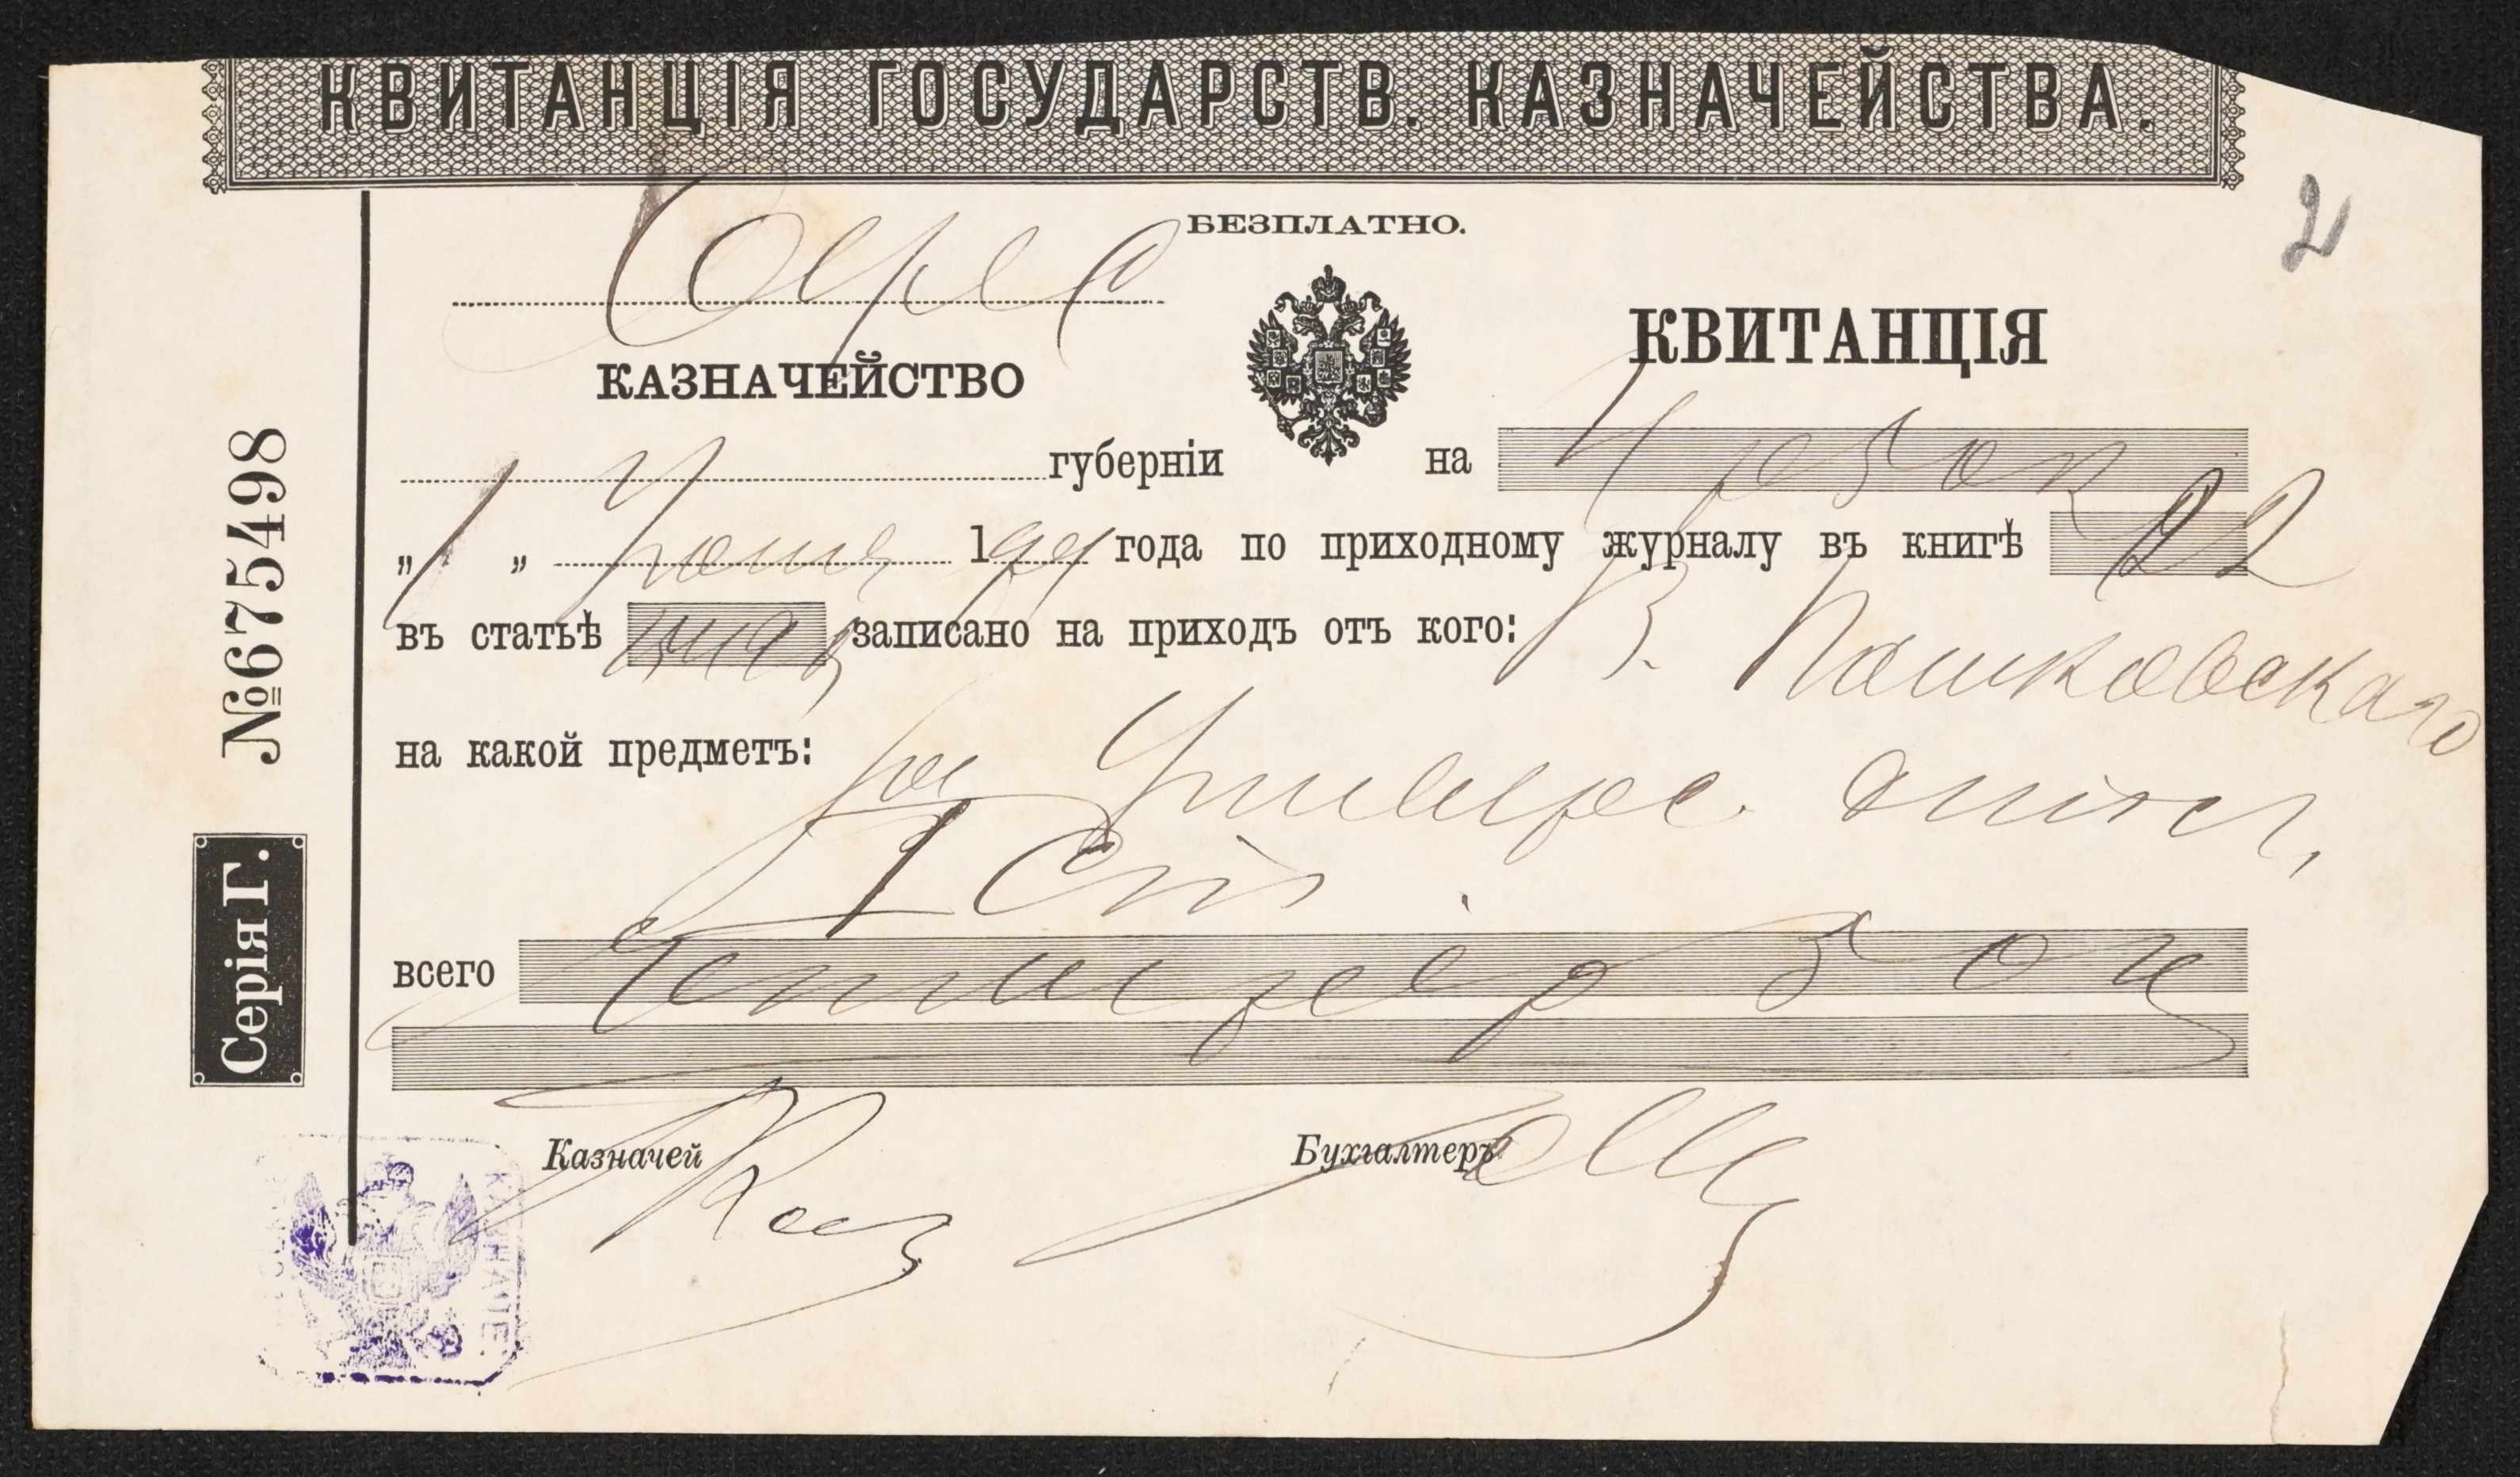 КВИТАНЦІЯ ГОСУДАРСТВ. КАЗНАЧЕЙСТВА.
БЕЗПЛАТНО.
2
КАЗНАЧЕЙСТВО
КВИТАНЦІЯ
губерніи на 4 р 50 к
„1„ Іюня 19 года по приходному журналу въ книгѣ 22
въ статьѣ записано на приходъ отъ кого: В. Пашковскаго
на какой предметъ: за Универс. дипл.
I ст.
всего Четыре р 50 к
Казначей
Бухгалтеръ
№ 675498
Серія Г.
КАЗНАЧЕ